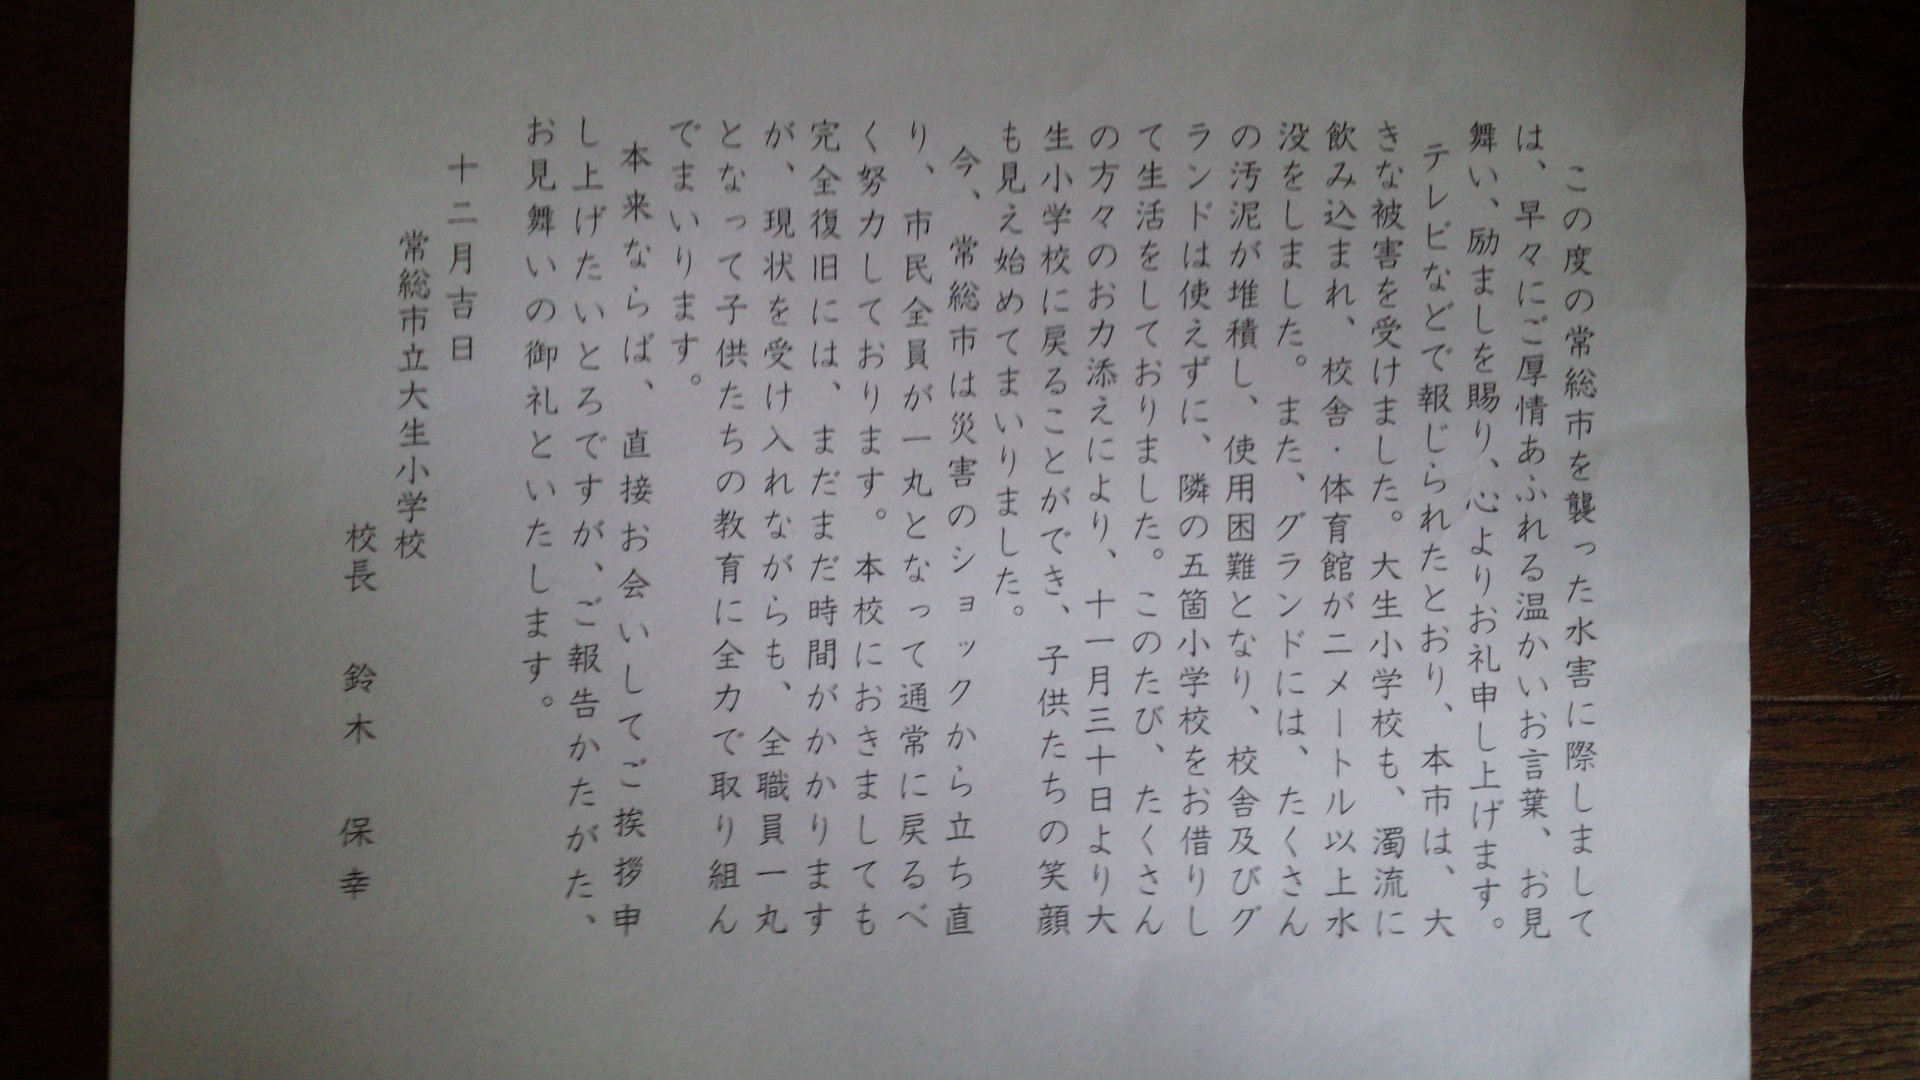 この度の常総市を襲った水害に際しまして
は、早々にご厚情あふれる温かいお言葉、お見
舞い、励ましを賜り、心よりお礼申し上げます。
テレビなどで報じられたとおり、本市は、大
きな被害を受けました。大生小学校も、濁流に
飲み込まれ、校舎・体育館が二メートル以上水
没をしました。また、グランドには、たくさん
の汚泥が堆積し、使用困難となり、校舎及びグ
ランドは使えずに、隣の五箇小学校をお借りし
て生活をしておりました。このたび、たくさん
の方々のお力添えにより、十一月三十日より大
生小学校に戻ることができ、子供たちの笑顔
も見え始めてまいりました。
今、常総市は災害のショックから立ち直
り、市民全員が一丸となって通常に戻るべ
く努力しております。本校におきましても
完全復旧には、まだまだ時間がかかります
が、現状を受け入れながらも、全職員一丸
となって子供たちの教育に全力で取り組ん
でまいります。
本来ならば、直接お会いしてご挨拶申
し上げたいとろですが、ご報告かたがた、
お見舞いの御礼といたします。
十二月吉日
常総市立大生小学校
校長 鈴木 保幸